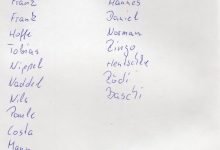 Franz
Frank
Hoffe
Tobias
Nippel
Waddel
Nils
Paule
Costa
Hannes
Daniel
Norman
Zingo
Hentschke
Zödi
Baschi